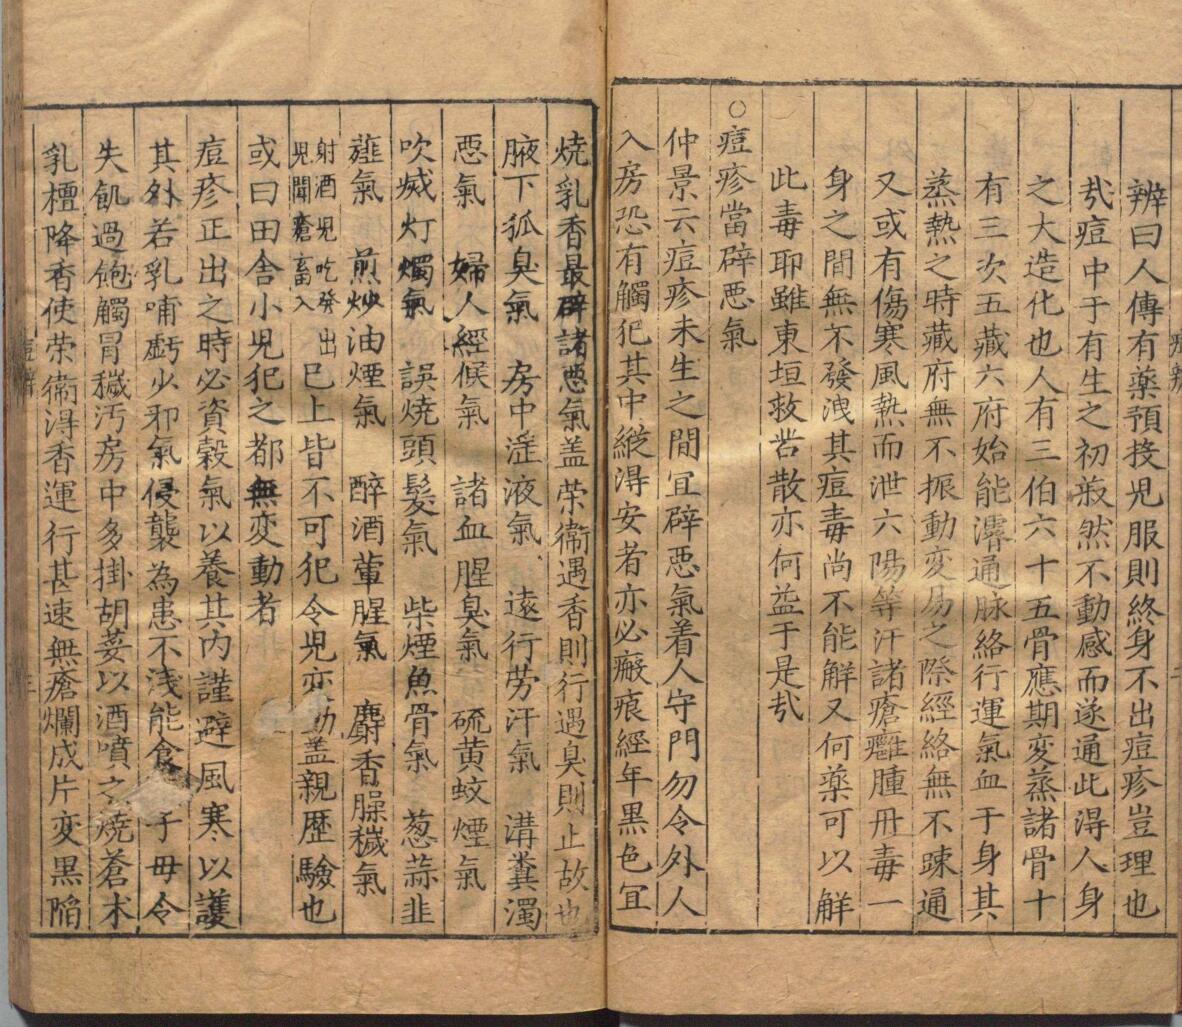 辨曰人傳有藥預投児服則終身不出痘疹豈理也
㦲痘中于有生之初㓗然不動感而遂通此淂人身
之大造化也人有三伯六十五骨應期変蒸諸骨十
有三次五藏六府始能濬通脉絡行運氣血于身其
蒸熱之時藏府無不振動変易之際經絡無不踈通
又或有傷寒風熱而泄六陽等汗諸瘡癰腫冊毒一
身之間無不發洩其痘毒尚不能解又何藥可以解
此毒耶雖東垣救苦散亦何益于是㦲
○痘疹當辟惡氣
仲景云痘疹未生之間宜辟惡氣着人守門勿令外人
入房恐有觸犯其中縱淂安者亦必瘢痕經年黒色宜
焼乳香最辟諸惡氣盖荣衞遇香則行遇臭則止故也
腋下狐臭氣 房中滛液氣 遠行劳汗氣 溝糞濁
惡氣 婦人經候氣 諸血腥臭氣 硫黄蚊煙氣
吹㓕灯燭氣 誤焼頭髮氣 柴煙魚骨氣 葱蒜韭
薤氣 煎炒油煙氣 醉酒葷腥氣 麝香臊穢氣
射酒児吃發出
児聞瘡畜入
已上皆不可犯令児变動盖親歴驗也
或曰田舎小児犯之都無変動者
痘疹正出之時必資穀氣以養其内謹避風寒以護
其外若乳哺虧少邪氣侵襲為患不浅能食 子母令
失飢過飽觸冒穢汚房中多掛胡荽以酒噴之焼蒼术
乳檀降香使荣衞淂香運行甚速無瘡爛成片变黒陷